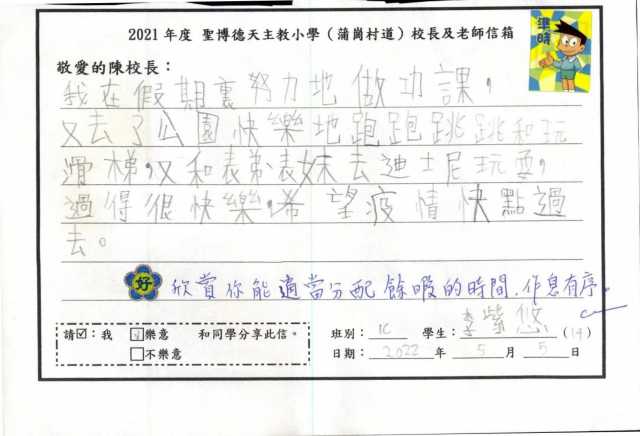 2021 年度 聖博德天主教小學（蒲崗村道）校長及老師信箱
準時
敬愛的陳校長：
我在假期裏努力地做功課，
又去了公園快樂地跑跑跳跳和玩
滑梯，又和表弟表妹去迪士尼玩耍，
過得很快樂，希望疫情快點過
去。
好 欣賞你能適當分配餘暇的時間，作息有序。
請☑：我 ☑樂意 和同學分享此信。
□不樂意
班別：1C 學生：李紫悠 (14)
日期：2022 年 5 月 5 日